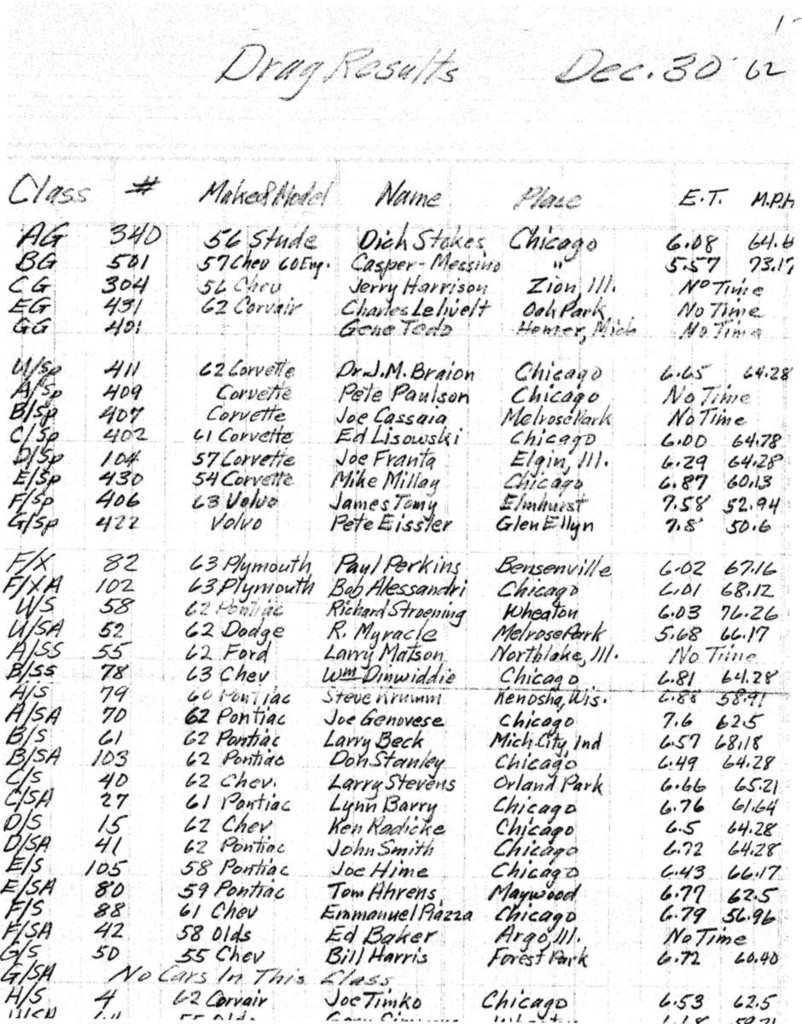 Drag Results Dec. 30 '62
Class # Make & Model Name Place E.T. M.P.H
AG 340 56 Stude Dich Stokes Chicago 6.08 64.6
BG 501 57 Chev 60 Eng. Casper-Messino " 5.57 73.17
CG 304 56 Chev Jerry Harrison Zion, Ill. No Time
EG 431 62 Corvair Charles Lelivelt Oak Park No Time
GG 401 Gene Todd Mich No Time
U/Sp 411 62 Corvette Dr. J.M. Braion Chicago 6.65 64.28
A/Sp 409 Corvette Pete Paulson Chicago No Time
B/Sp 407 Corvette Joe Cassaia Melrose Park No Time
C/Sp 402 61 Corvette Ed Lisowski Chicago 6.00 64.78
D/Sp 104 57 Corvette Joe Franta Elgin, Ill. 6.29 64.28
E/Sp 430 54 Corvette Mike Millay Chicago 6.87 60.13
F/Sp 406 63 Volvo James Tomy Elmhurst 7.58 52.94
G/Sp 422 Volvo Pete Eissler Glen Ellyn 7.8 50.6
F/X 82 63 Plymouth Paul Perkins Bensenville 6.02 67.16
F/XA 102 63 Plymouth Bob Alessandri Chicago 6.01 68.12
U/S 58 62 Pontiac Richard Stroening Wheaton 6.03 76.26
U/SA 52 62 Dodge R. Myracle Melrose Park 5.68 66.17
A/SS 55 62 Ford Larry Matson Northlake, Ill. No Time
B/SS 78 63 Chev Wm Dinwiddie Chicago 6.81 64.28
A/S 79 60 Pontiac Steve Krumm Kenosha, Wis. 6.88 58.91
A/SA 70 62 Pontiac Joe Genovese Chicago 7.6 62.5
B/S 61 62 Pontiac Larry Beck Mich. City, Ind 6.57 68.18
B/SA 103 62 Pontiac Don Stanley Chicago 6.49 64.28
C/S 40 62 Chev. Larry Stevens Orland Park 6.66 65.21
C/SA 27 61 Pontiac Lynn Barry Chicago 6.76 61.64
D/S 15 62 Chev Ken Radicke Chicago 6.5 64.28
D/SA 41 62 Pontiac John Smith Chicago 6.72 64.28
E/S 105 58 Pontiac Joe Hime Chicago 6.43 66.17
E/SA 80 59 Pontiac Tom Ahrens Maywood 6.77 62.5
F/S 88 61 Chev Emmanuel Piazza Chicago 6.79 56.96
F/SA 42 58 Olds Ed Baker Argo, Ill. No Time
G/S 50 55 Chev Bill Harris Forest Park 6.72 60.40
G/SA No Cars In This Class
H/S 4 62 Corvair Joe Timko Chicago 6.53 62.5